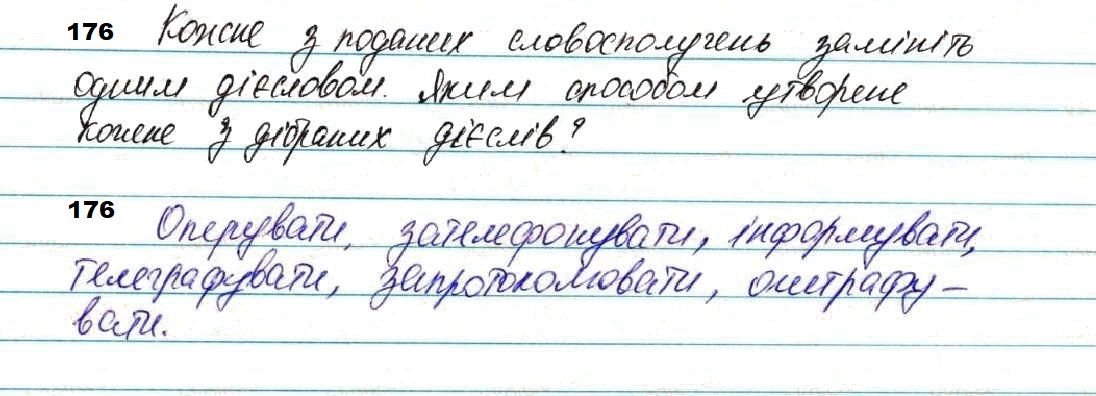 176 Кожне з поданих словосполучень замініть
одним дієсловом. Яким способом утворене
кожне з дібраних дієслів?
176 Оперувати, зателефонувати, інформувати,
телеграфувати, запротоколювати, оштрафу-
вати.